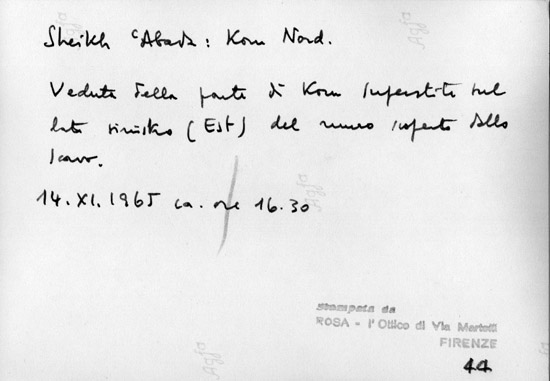 Sheikh ʿAbada: Kom Nord.
Veduta della parte di Kom superstite sul
lato sinistro (Est) del muro scoperto dallo
scavo.
14.XI.1965 ca. ore 16.30
Stampata da
ROSA - l'Ottico di Via Martelli
FIRENZE
44